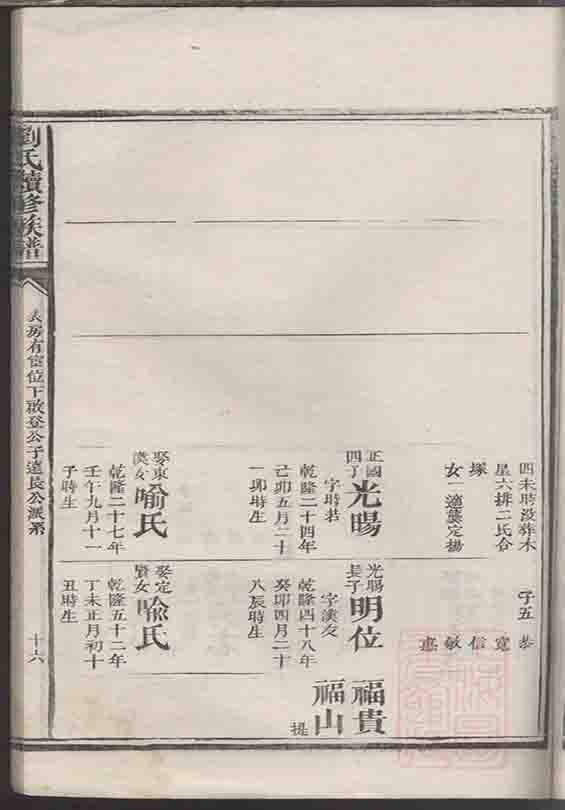 劉氏續修族譜
房有宦位下啟登公子遠長公派系
十六
四未時没葬木
星六排二氏合
塚
女一適龔定揚
子五 恭
寬
信
敏
惠
正國
四子
光暘
字時若
乾隆二十四年
己卯五月二十
一卯時生
娶東
漢女
喻氏
乾隆二十七年
壬午九月十一
子時生
光暘
長子
明位
字漢友
乾隆四十八年
癸卯四月二十
八辰時生
娶定
賢女
喻氏
乾隆五十二年
丁未正月初十
丑時生
福貴
福山
提